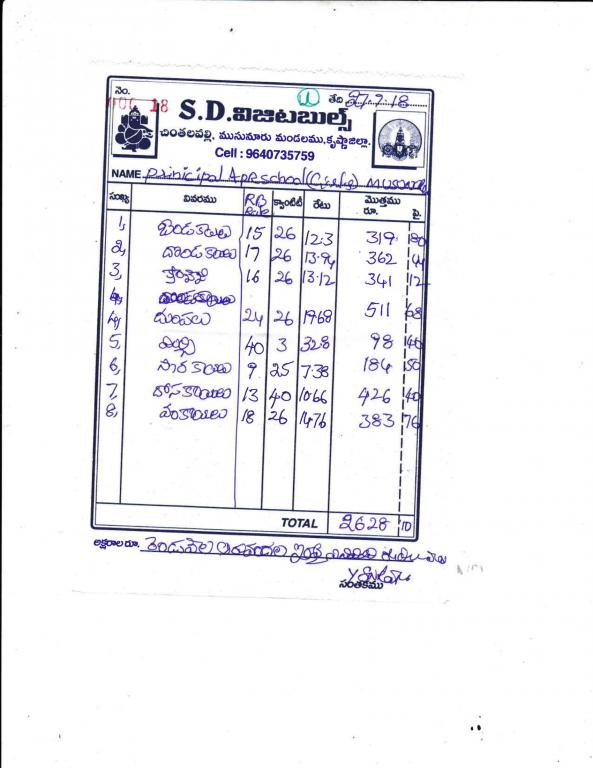 నెం.
తేది 27.7.18
S.D.విజిటబుల్స్
చింతలవల్లి, ముసునూరు మండలము, కృష్ణాజిల్లా.
Cell : 9640735759
NAME Prinicipal APR School (Girls)
సంఖ్య వివరము RB Rate క్వాంటిటీ రేటు మొత్తము రూ. పై.
1, బెండకాయలు 15 26 12.3 319 80
2, దొండకాయలు 17 26 13.94 362 44
3, 16 26 13.12 341 12
4, దుంపలు 24 26 19.68 511 68
5, మిర్చి 40 3 32.8 98 40
6, సొరకాయలు 9 25 7.38 184 50
7, దోసకాయలు 13 40 10.66 426 40
8, వంకాయలు 18 26 14.76 383 76
TOTAL 2628 10
అక్షరాల రూ. రెండువేల ఆరువందల
సంతకము